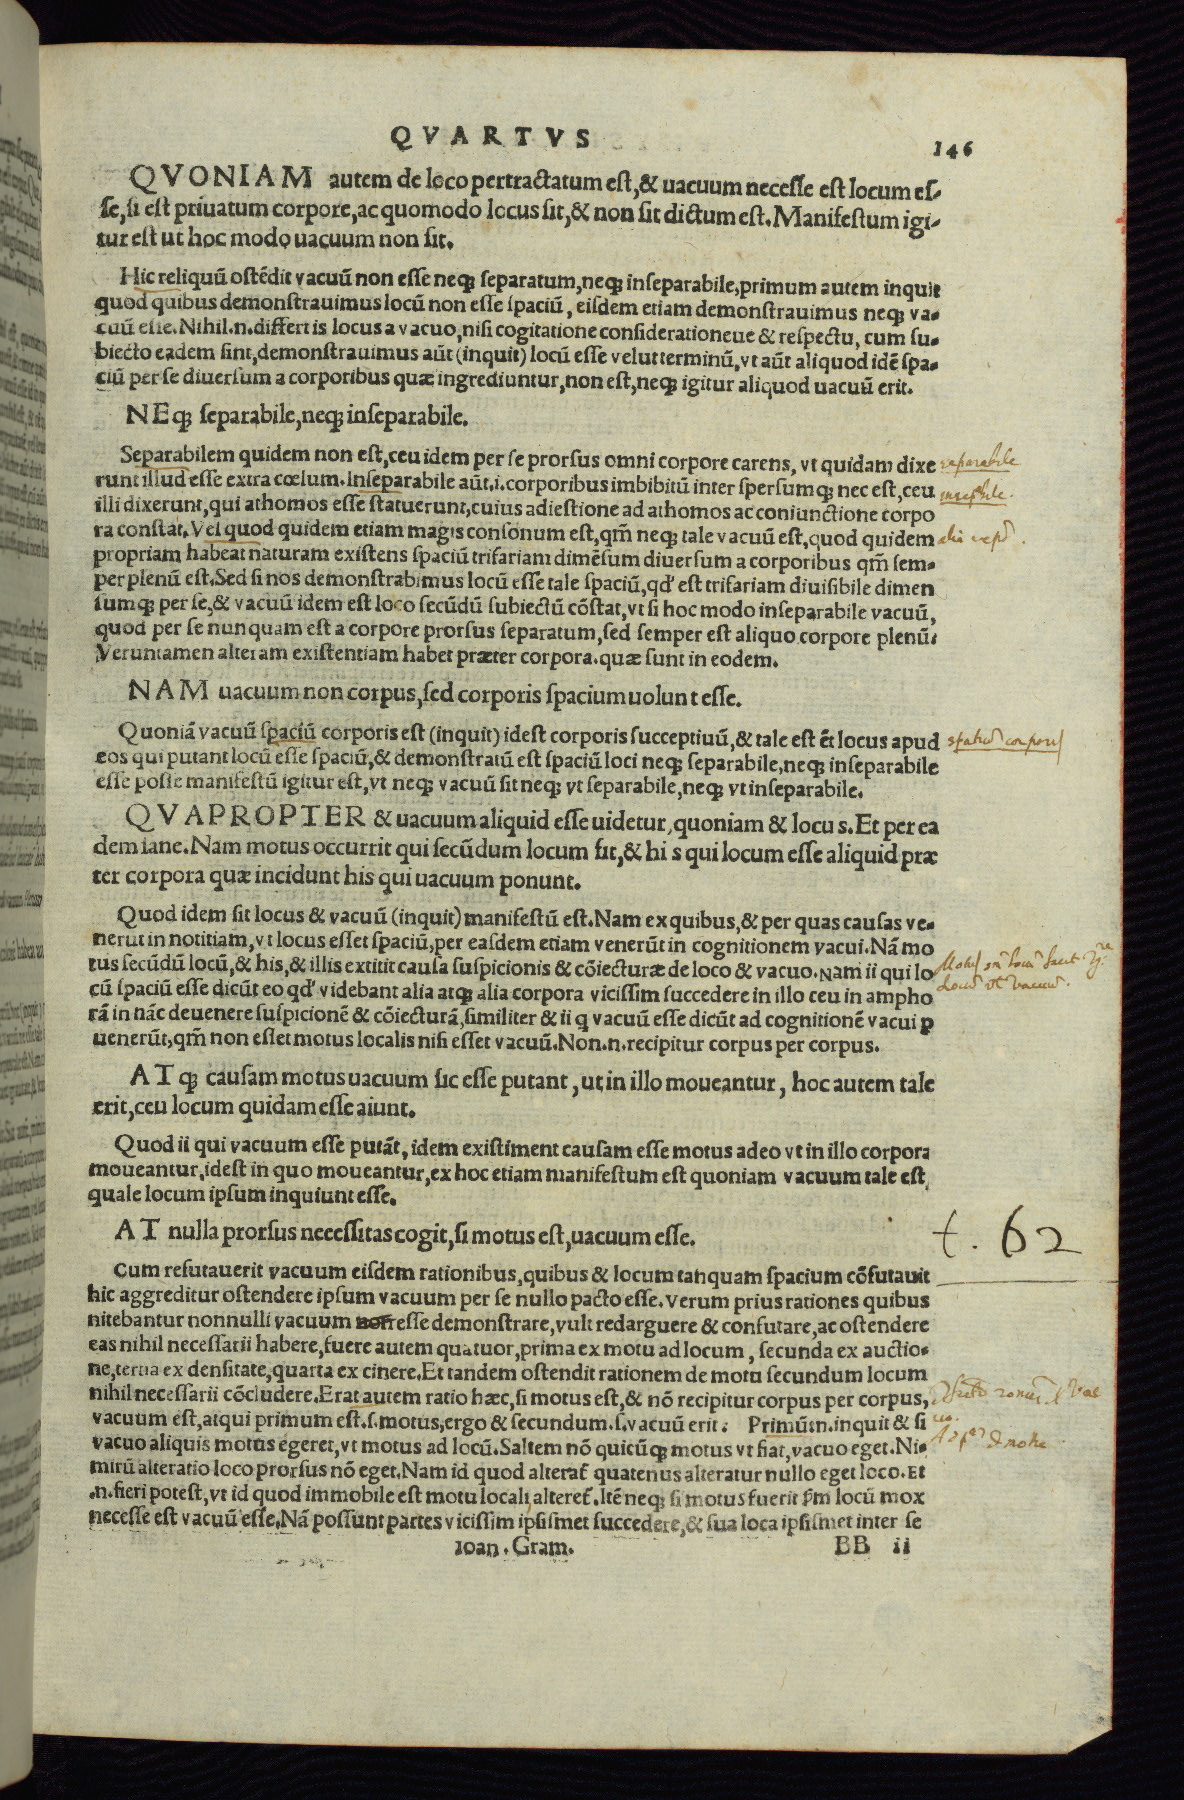 QVARTVS
146
QVONIAM autem de loco pertractatum est, & uacuum necesse est locum es-
se, si est priuatum corpore, ac quomodo locus sit, & non sit dictum est. Manifestum igi-
tur est ut hoc modo uacuum non sit.
Hic reliquũ ostẽdit vacuũ non esse neqȝ separatum, neqȝ inseparabile, primum autem inquit
quod quibus demonstrauimus locũ non esse spaciũ, eisdem etiam demonstrauimus neqȝ va-
cuũ esse. Nihil .n. differt is locus a vacuo, nisi cogitatione considerationeue & respectu, cum su-
biecto eadem sint, demonstrauimus aũt (inquit) locũ esse velut terminũ, vt aũt aliquod idẽ spa-
ciũ per se diuersum a corporibus quæ ingrediuntur, non est, neqȝ igitur aliquod uacuũ erit.
NEqȝ separabile, neqȝ inseparabile.
Separabilem quidem non est, ceu idem per se prorsus omni corpore carens, vt quidam dixe
separabile
runt illud esse extra cœlum. Inseparabile aũt .i. corporibus imbibitũ inter spersumqȝ nec est, ceu
illi dixerunt, qui athomos esse statuerunt, cuius adiestione ad athomos ac coniunctione corpo
ra constat. Vel quod quidem etiam magis consonum est, qm̃ neqȝ tale vacuũ est, quod quidem
propriam habeat naturam existens spaciũ trifariam dimẽsum diuersum a corporibus qm̃ sem-
per plenũ est. Sed si nos demonstrabimus locũ esse tale spaciũ, qd' est trifariam diuisibile dimen
sumqȝ per se, & vacuũ idem est loco secũdũ subiectũ cõstat, vt si hoc modo inseparabile vacuũ,
quod per se nunquam est a corpore prorsus separatum, sed semper est aliquo corpore plenũ.
Veruntamen alteram existentiam habet præter corpora. quæ sunt in eodem.
NAM uacuum non corpus, sed corporis spacium uolunt esse.
Quoniã vacuũ spaciũ corporis est (inquit) idest corporis succeptiuũ, & tale est ẽt locus apud
eos qui putant locũ esse spaciũ, & demonstratũ est spaciũ loci neqȝ separabile, neqȝ inseparabile
esse posse manifestũ igitur est, vt neqȝ vacuũ sit neqȝ vt separabile, neqȝ vt inseparabile.
QVAPROPTER & uacuum aliquid esse uidetur, quoniam & locu s. Et per ea
dem iane. Nam motus occurrit qui secũdum locum fit, & hi s qui locum esse aliquid præ
ter corpora quæ incidunt his qui uacuum ponunt.
Quod idem sit locus & vacuũ (inquit) manifestũ est. Nam ex quibus, & per quas causas ve-
nerũt in notitiam, vt locus esset spaciũ, per easdem etiam venerũt in cognitionem vacui. Nã mo
tus secũdũ locũ, & his, & illis extitit causa suspicionis & cõiecturæ de loco & vacuo. Nam ii qui lo
cũ spaciũ esse dicũt eo qd' videbant alia atqȝ alia corpora vicissim succedere in illo ceu in ampho
rã in hãc deuenere suspicionẽ & cõiecturã, similiter & ii q vacuũ esse dicũt ad cognitionẽ vacui ꝑ
uenerũt, qm̃ non esset motus localis nisi esset vacuũ. Non .n. recipitur corpus per corpus.
ATqȝ causam motus uacuum sic esse putant, ut in illo moueantur, hoc autem tale
erit, ceu locum quidam esse aiunt.
Quod ii qui vacuum esse putãt, idem existiment causam esse motus adeo vt in illo corpora
moueantur, idest in quo moueantur, ex hoc etiam manifestum est quoniam vacuum tale est,
quale locum ipsum inquiunt esse.
AT nulla prorsus necessitas cogit, si motus est, uacuum esse.
t. 62
Cum refutauerit vacuum eisdem rationibus, quibus & locum tanquam spacium cõfutauit
hic aggreditur ostendere ipsum vacuum per se nullo pacto esse. Verum prius rationes quibus
nitebantur nonnulli vacuum non esse demonstrare, vult redarguere & confutare, ac ostendere
eas nihil necessarii habere, fuere autem quatuor, prima ex motu ad locum, secunda ex auctio-
ne, tertia ex densitate, quarta ex cinere. Et tandem ostendit rationem de motu secundum locum
nihil necessarii cõcludere. Erat autem ratio hæc, si motus est, & nõ recipitur corpus per corpus,
vacuum est, atqui primum est .s. motus, ergo & secundum .s. vacuũ erit. Primũ .n. inquit & si
vacuo aliquis motus egeret, vt motus ad locũ. Saltem nõ quicũqȝ motus vt fiat, vacuo eget. Ni-
mirũ alteratio loco prorsus nõ eget. Nam id quod alterat̃ quatenus alteratur nullo eget loco. Et
.n. fieri potest, vt id quod immobile est motu locali, alteret̃. Itẽ neqȝ si motus fuerit s̃m locũ mox
necesse est vacuũ esse. Nã possunt partes vicissim ipsismet succedere, & sua loca ipsismet inter se
Ioan. Gram.
BB ii